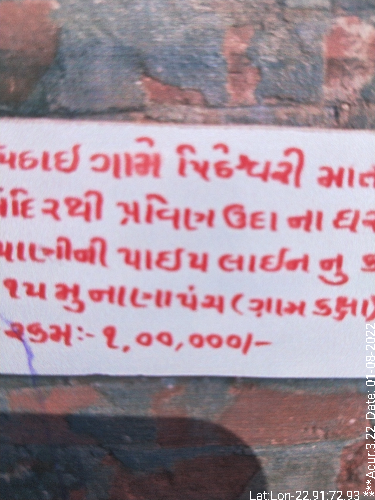 ગામે પિઠેશ્વરી માત
મંદિરથી પ્રવિણ ઉદા ના ઘર
પાણીની પાઇપ લાઈન નુ
૧૫ મુ નાણાપંચ (ગ્રામ કક્ષા)
રકમઃ- ૧,૦૦,૦૦૦/-
Lat:Lon-22.91:72.93 ***Acur:3.22, Date: 01-08-2022